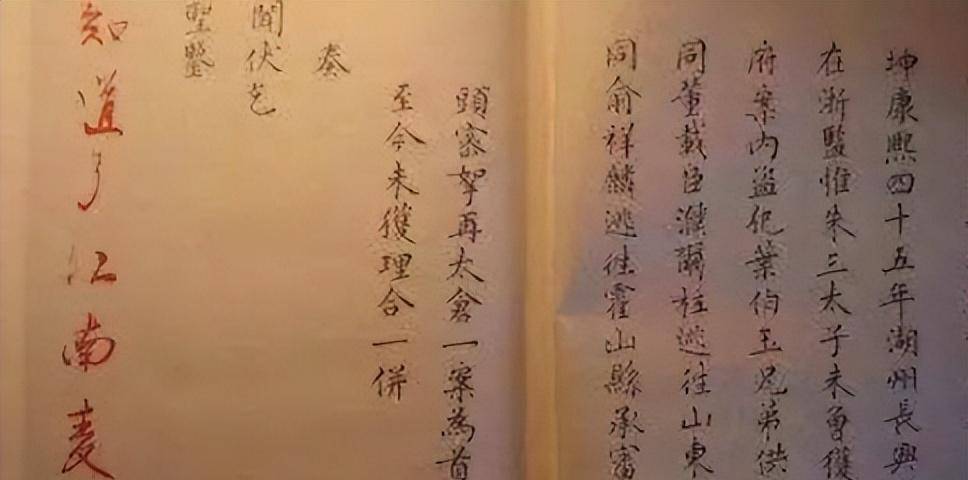 坤康熙四十五年湖州長興
在浙監惟朱三太子未曾獲
府案內盜犯葉伯玉兄弟供
同董載臣濮爾柱逃往山東
同俞祥麟逃往霍山縣承審
頭密挐再太倉一案為首
至今未獲理合一併
奏
聞伏乞
聖鑒
知道了江南麦